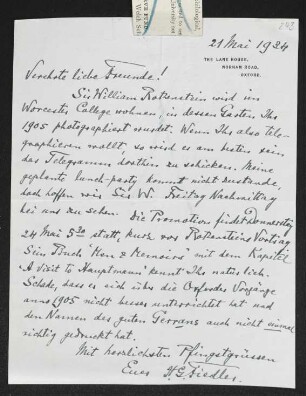 243
21 Mai 1934
THE LANE HOUSE,
NORHAM ROAD,
OXFORD.
Verehrte liebe Freunde!
Sir William Rothenstein wird im
Worcester College wohnen in dessen Garten Ihr
1905 photographiert wurdet. Wenn Ihr also tele-
graphieren wollt, so wird es am besten sein
das Telegramm dorthin zu schicken. Meine
geplante lunch-party kommt nicht zustande,
doch hoffen wir Sir W. Freitag Nachmittag
bei uns zu sehen. Die Promotion findet Donnerstag
24 Mai 5.30 statt, kurz vor Rothensteins Vortrag
Sein Buch "Men & Memoirs" mit dem Kapitel
"A visit to Hauptmann" kennt Ihr natürlich.
Schade, dass es sich über die Oxforder Vorgänge
anno 1905 nicht besser unterrichtet hat und
den Namen des guten Gerrans auch nicht einmal
richtig gedruckt hat.
Mit herzlichsten Pfingstgrüssen
Euer H. G. Fiedler.